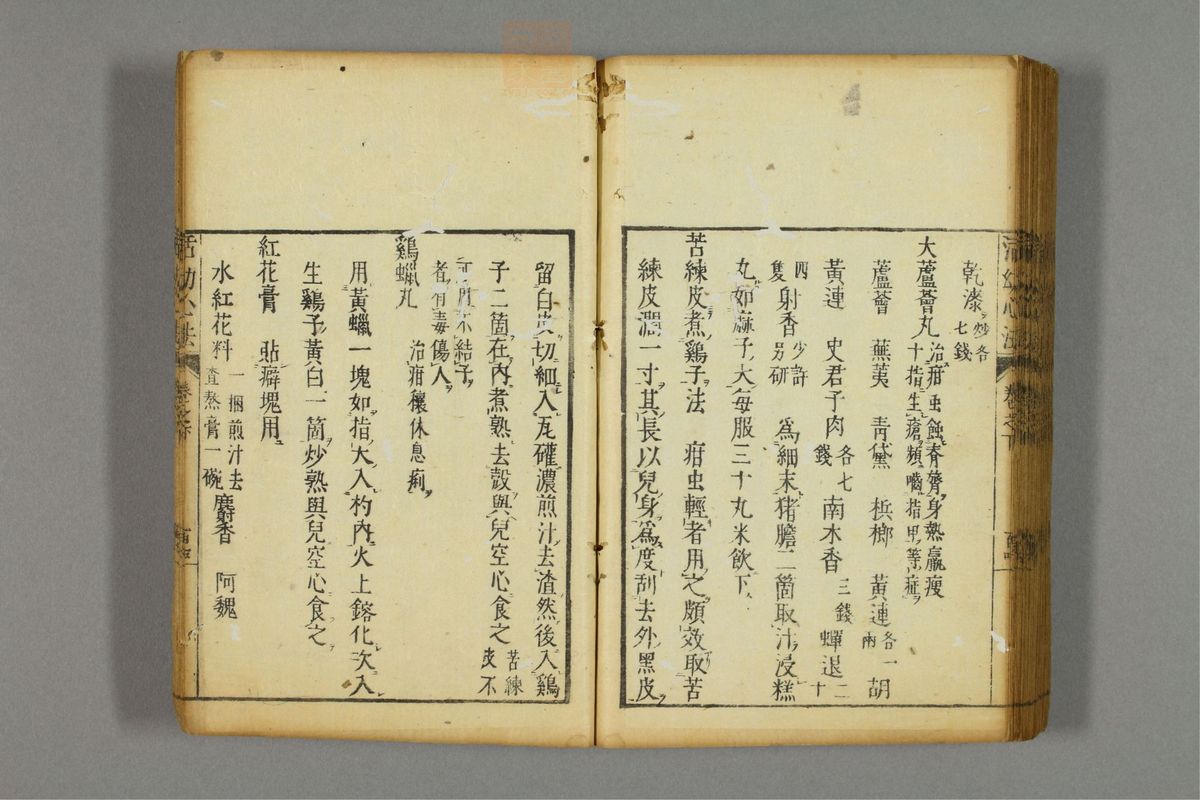 乾漆炒各七錢
大蘆薈丸治疳虫蝕脊膂身熱羸瘦十指生瘡頻嚙指甲等症
蘆薈 蕪荑 青黛 梹榔 黃連各一兩 胡
黃連 史君子肉各七錢 南木香三錢 蟬退二十
四隻 射香少許另研 為細末猪膽二箇取汁浸糕
丸如麻子大每服三十丸米飲下
苦練皮煮鷄子法 疳虫輕者用之頗效取苦
練皮濶一寸其長以兒身為度刮去外黑皮
留白皮切細入瓦礶濃煎汁去渣然後入鷄
子二箇在內煮熟去殼與兒空心食之苦練皮不
可用不結子者有毒傷人
鷄蠟丸 治疳積休息痢
用黃蠟一塊如指大入杓內火上鎔化次入
生鷄子黃白一箇炒熟與兒空心食之
紅花膏 貼癖塊用
水紅花料一梱煎汁去渣熬膏一碗 麝香 阿魏
活幼心法 卷之下